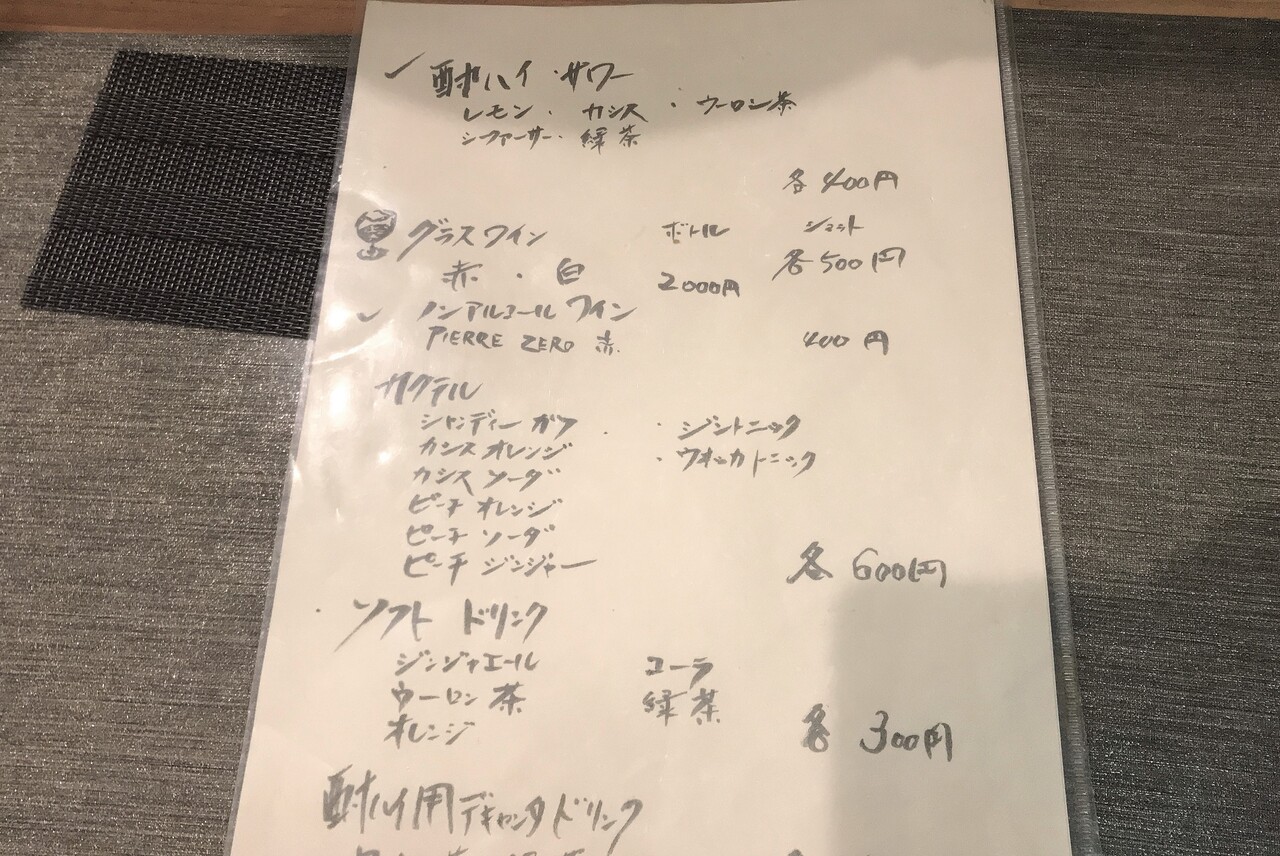 酎ハイ・サワー
レモン・カシス・ウーロン茶
シークァーサー・緑茶
各400円
グラスワイン ボトル ショット
赤・白 2000円 各500円
ノンアルコールワイン
PIERRE ZERO 赤 400円
カクテル
シャンディーガフ ・ジントニック
カシスオレンジ ・ウオッカトニック
カシスソーダ
ピーチオレンジ
ピーチソーダ
ピーチジンジャー 各600円
・ソフトドリンク
ジンジャエール コーラ
ウーロン茶 緑茶
オレンジ 各300円
酎ハイ用デキャンタドリンク